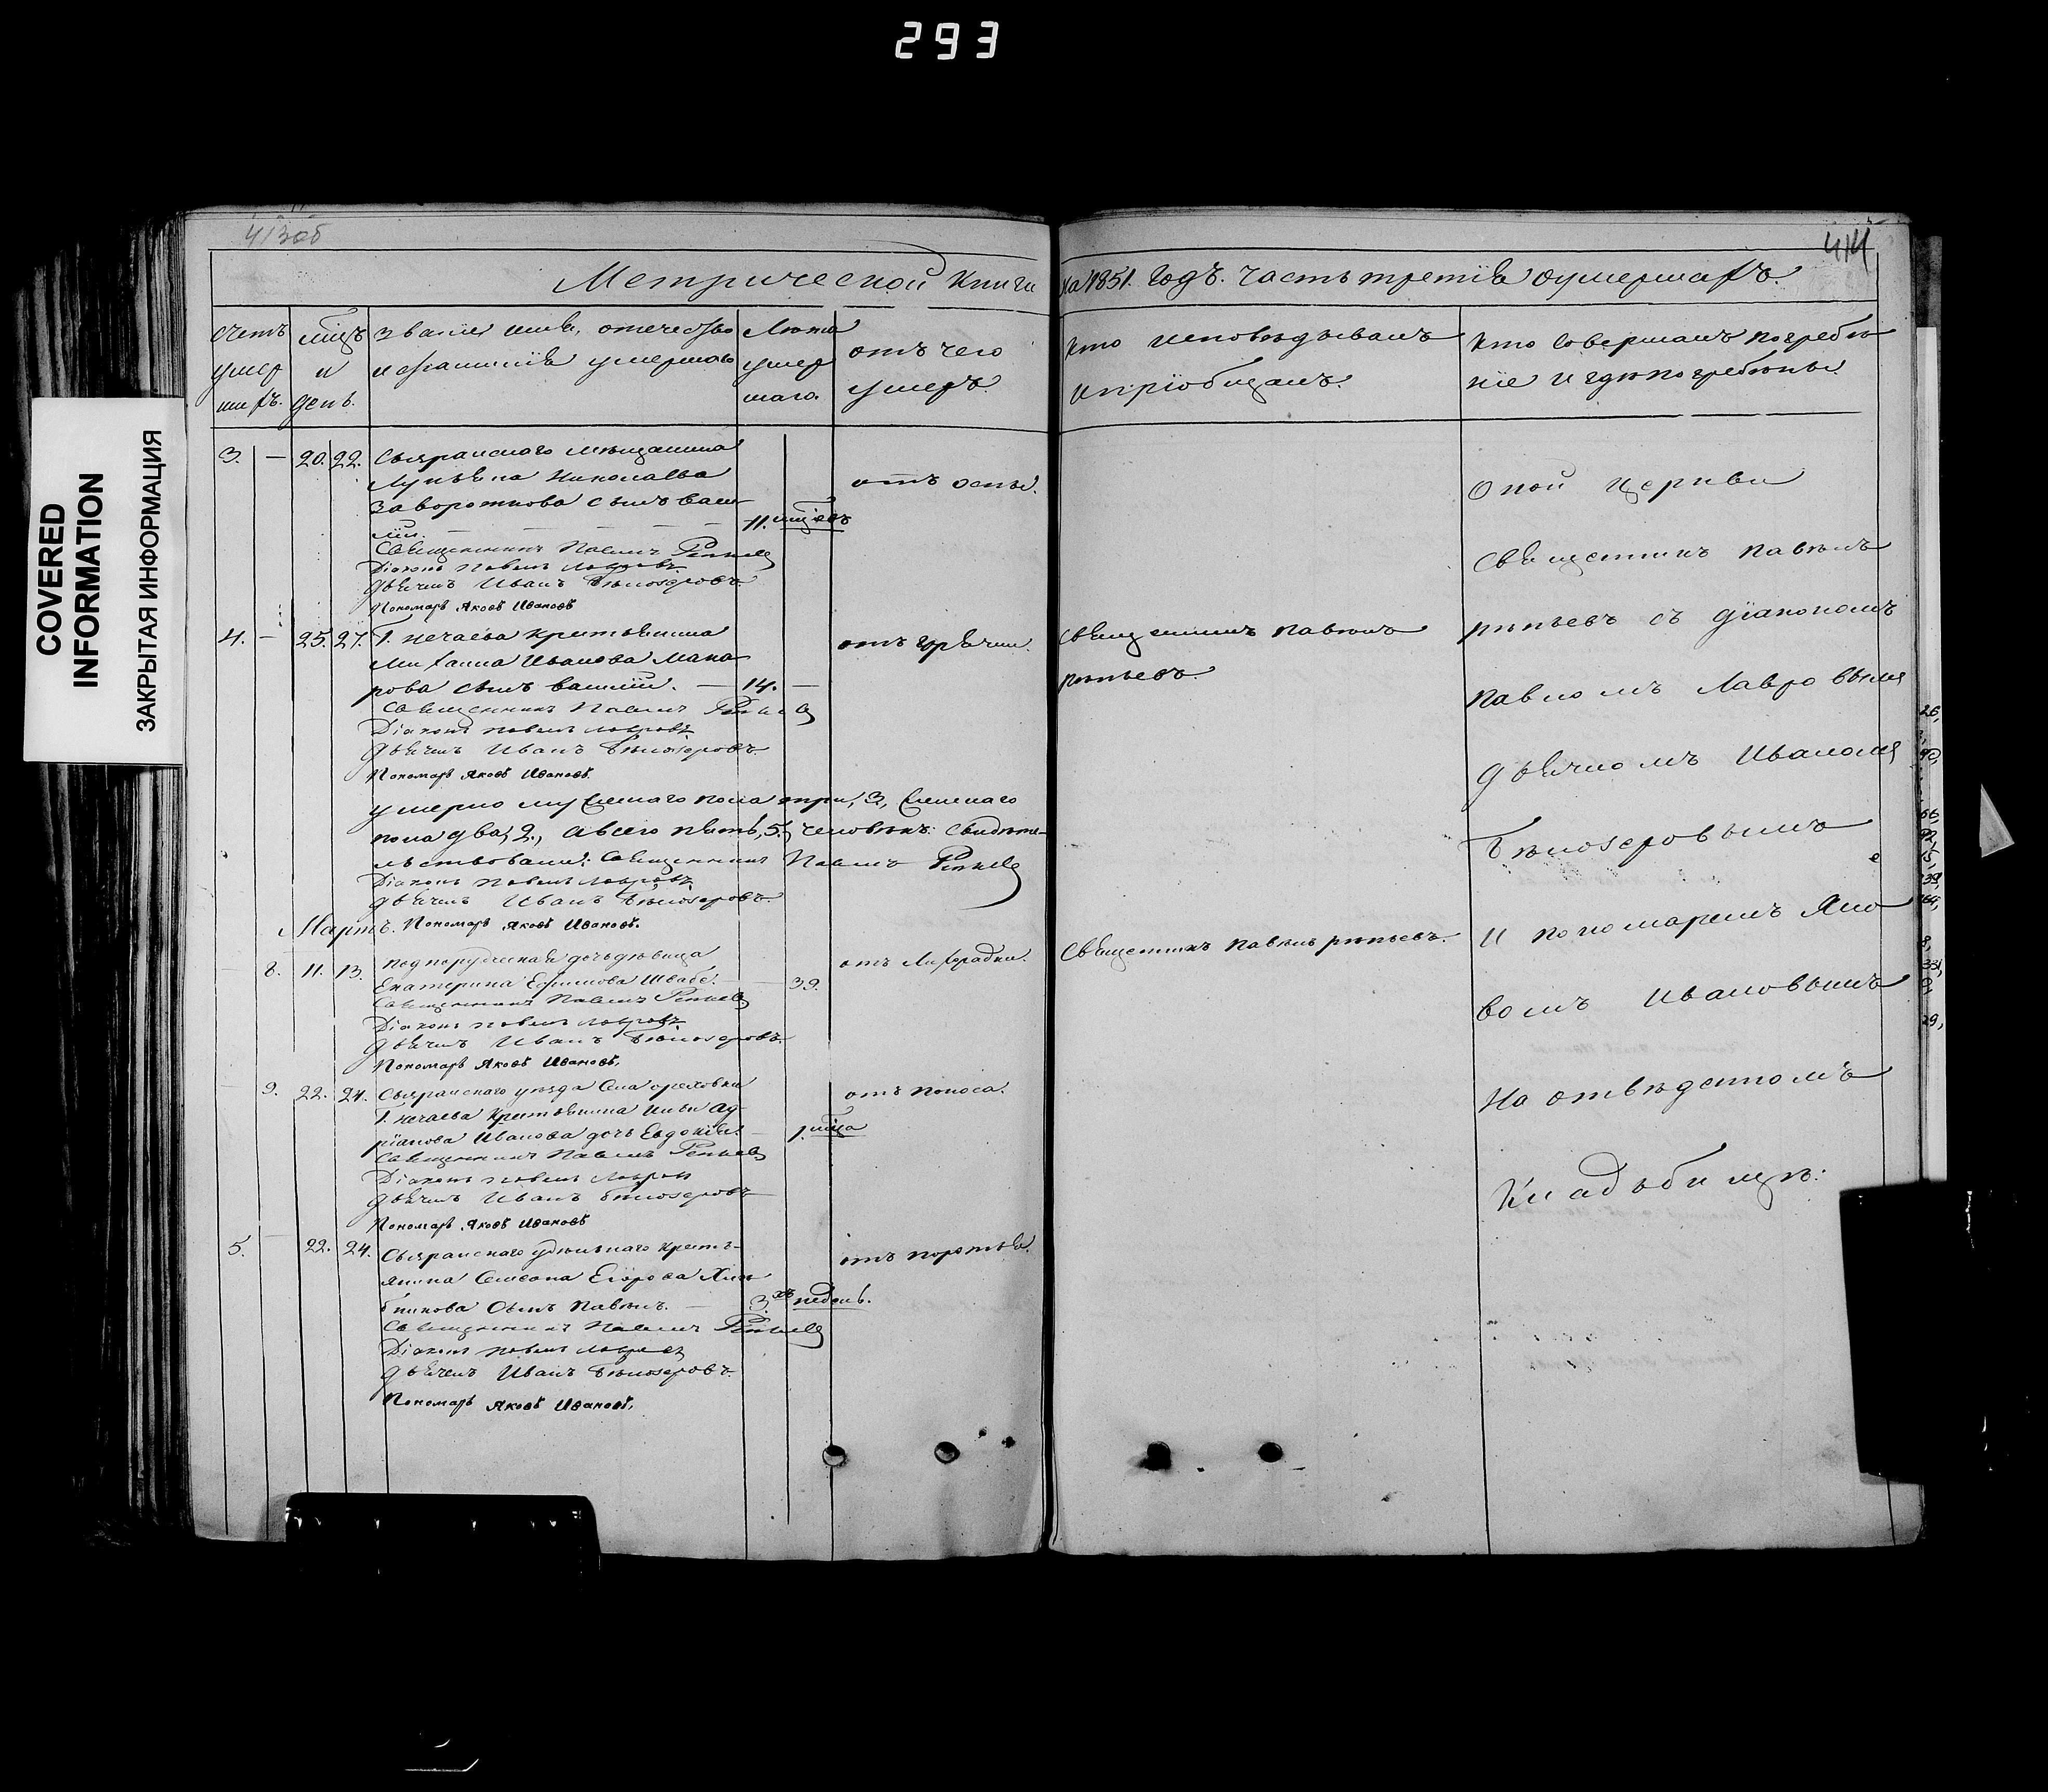 293
COVERED
INFORMATION
ЗАКРЫТАЯ ИНФОРМАЦИЯ
413об
414
Метрической книги на 1851. годъ. часть третія оумершихъ.
счетъ умер шихъ.
мѣцъ и день.
званіе имя, отечество и фамилія умершаго
Лѣта умер шаго.
отъ чего умеръ.
кто исповѣдывалъ и пріобщалъ.
кто совершалъ погребе ніе и гдѣ погребены.
3. — 20. 22. Сызранскаго мѣщанина
Николаева
Заворотнова сынъ Васи
лій. — 11. мѣцовъ
отъ оспы.
Священникъ Павелъ Рѣпьевъ
Діаконъ Павелъ Лавровъ
Дьячекъ Иванъ Бѣлозеровъ.
Пономарь Яковъ Ивановъ
4. — 25. 27. Г. Нечаева крестьянина
Михаила Иванова Мака
рова сынъ Василій. — 14. —
отъ горячки.
Священникъ Павелъ
Рѣпьевъ.
Священникъ Павелъ Рѣпьевъ
Діаконъ Павелъ Лавровъ
Дьячекъ Иванъ Бѣлозеровъ.
Пономарь Яковъ Ивановъ.
умерло мужескаго пола три, 3., женскаго
пола два, 2., а всего пять, 5., человѣкъ: Свидѣте-
льствовали: Священникъ Павелъ Рѣпьевъ
Діаконъ Павелъ Лавровъ
Дьячекъ Иванъ Бѣлозеровъ.
Мартъ. Пономарь Яковъ Ивановъ.
8. 11. 13. подпорутческая дочь дѣвица
Екатерина Ефимова Швабе. — 39.
отъ Лихорадки.
Священникъ Павелъ Рѣпьевъ.
Священникъ Павелъ Рѣпьевъ
Діаконъ Павелъ Лавровъ
Дьячекъ Иванъ Бѣлозеровъ.
Пономарь Яковъ Ивановъ.
9. 22. 24. Сызранскаго уѣзда Села ореховки
Г. Нечаева Крестьянина Ильи Ад-
ріанова Иванова дочь Евдокія. — 1. мѣца
отъ поноса.
Священникъ Павелъ Рѣпьевъ
Діаконъ Павелъ Лавровъ
Дьячекъ Иванъ Бѣлозеровъ
Пономарь Яковъ Ивановъ
5. — 22. 24. Сызранскаго удѣльнаго Кресть-
янина Семена Егорова Хлѣ
бникова Сынъ Павелъ. — 3.хъ недѣль.
Священникъ Павелъ Рѣпьевъ
Діаконъ Павелъ Лавровъ
Дьячекъ Иванъ Бѣлозеровъ.
Пономарь Яковъ Ивановъ.
Оной Церкви
Священникъ Павелъ
Рѣпьевъ съ діакономъ
Павломъ Лавровымъ
дьячкомъ Иваномъ
Бѣлозеровымъ
и пономаремъ Яко
вомъ Ивановымъ
На отвѣденномъ
Кладьбищѣ: